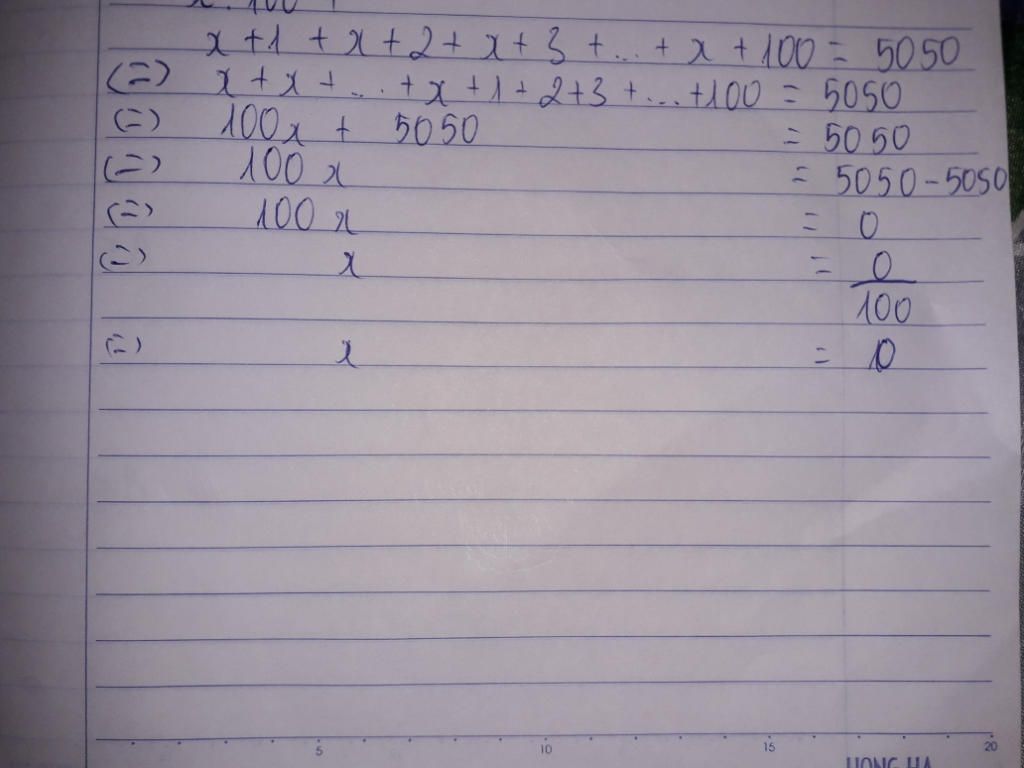 x + 1 + x + 2 + x + 3 + ... + x + 100 = 5050
(=) x + x + ... + x + 1 + 2 + 3 + ... + 100 = 5050
(=) 100x + 5050 = 5050
(=) 100x = 5050 - 5050
(=) 100x = 0
(=) x = 0
100
(=) x = 0
5 10 15 20
HONG HA